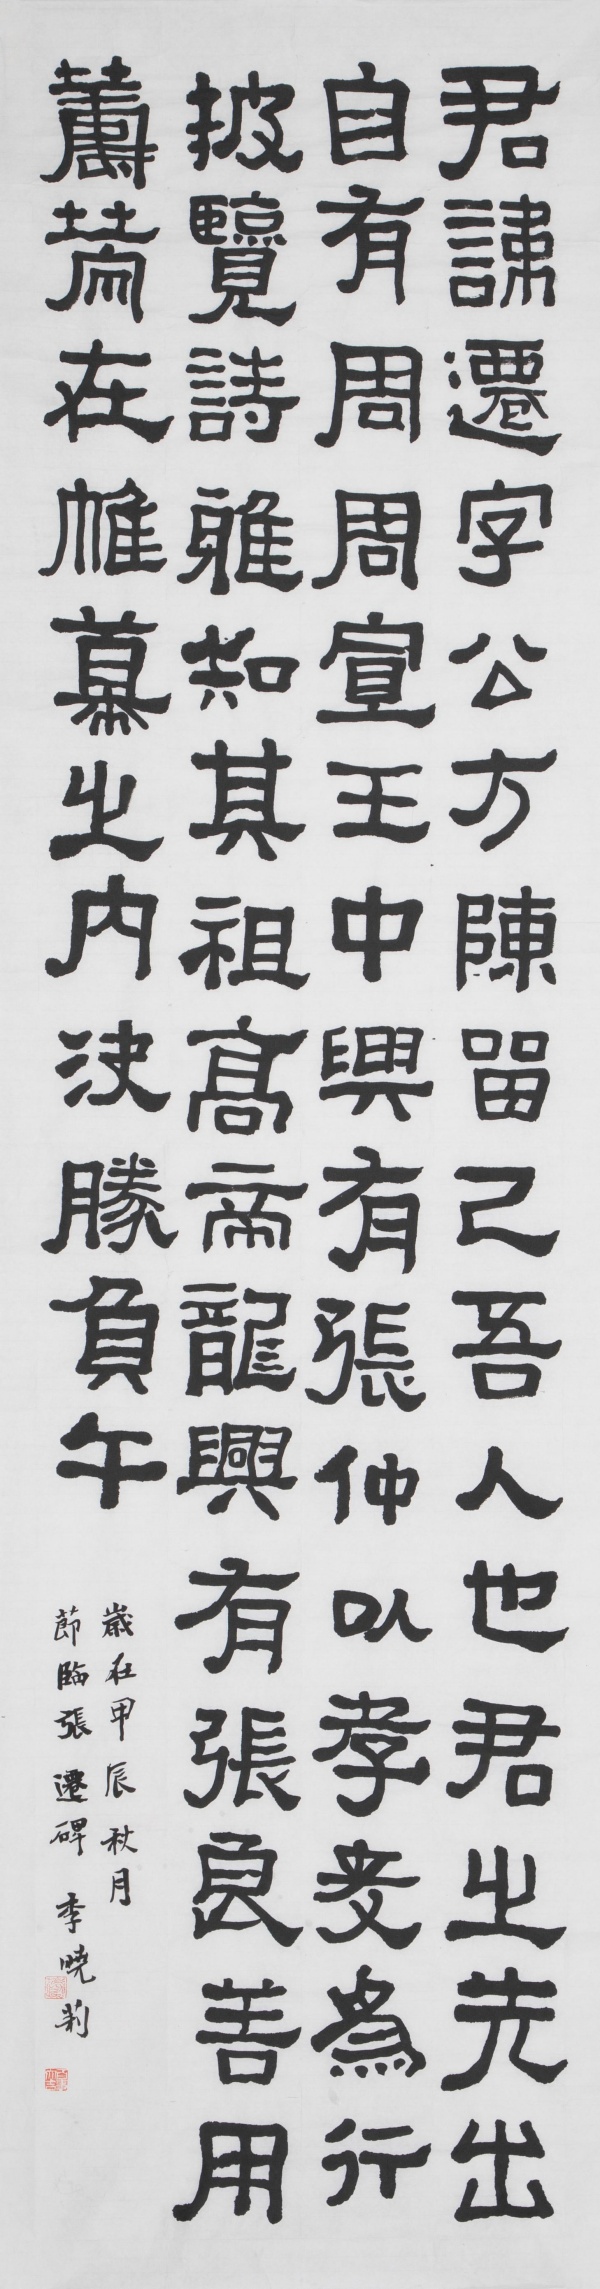 君諱遷字公方陳留己吾人也君之先出
自有周周宣王中興有張仲以孝友為行
披覽詩雅知其祖高帝龍興有張良善用
籌策在帷幕之內決勝負千
歲在甲辰秋月
節臨張遷碑 李曉莉